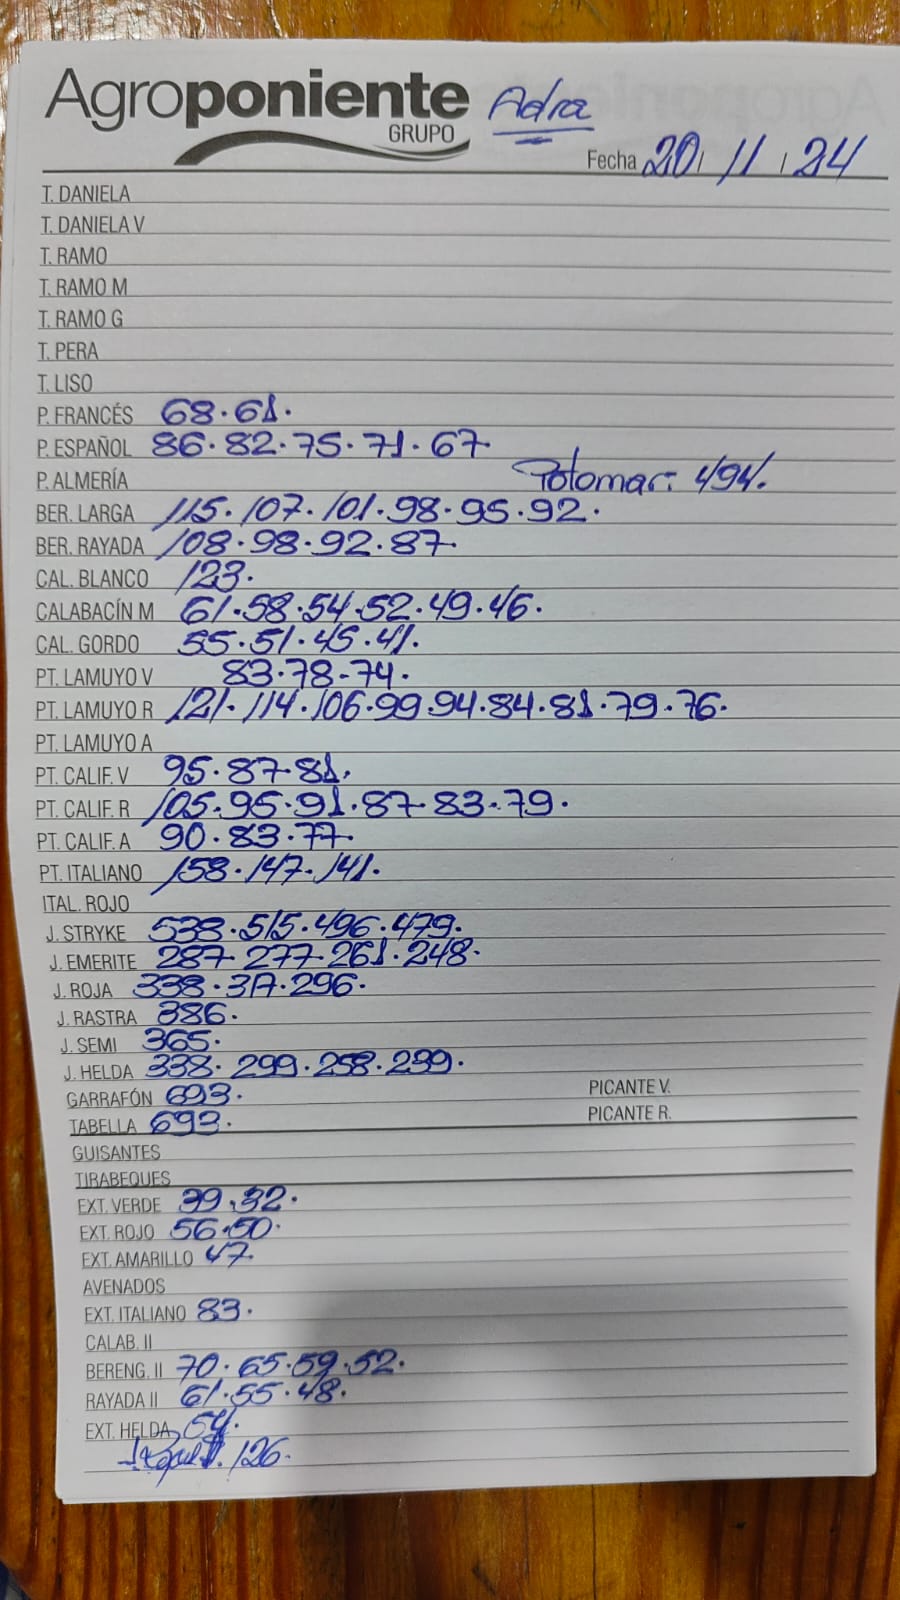 Agroponiente Adra
GRUPO
Fecha 20 / 11 / 24
T. DANELA
T. DANIELA V
T. RAMO
T. RAMO M
T. RAMO G
T. PERA
T. LISO
P. FRANCÉS 68.61.
P. ESPAÑOL 86.82.75.71.67.
P. ALMERÍA Potomar: 494.
BER. LARGA 115.107.101.98.95.92.
BER. RAYADA 108.98.92.87.
CAL. BLANCO 123.
CALABACÍN M 61.58.54.52.49.46.
CAL. GORDO 55.51.45.41.
PT. LAMUYO V 83.78-74.
PT. LAMUYO R 121.114.106.99.94.84.81.79.76.
PT. LAMUYO A
PT. CALIF. V 95.87.81.
PT. CALIF. R 105.95.91.87.83.79.
PT. CALIF. A 90.83.77.
PT. ITALIANO 158.147.141.
ITAL. ROJO
J. STRYKE 538.515.496.479.
J. EMERITE 287.277.261.248.
J. ROJA 338.317.296.
J. RASTRA 386.
J. SEMI 365.
J. HELDA 338.299.258.239.
GARRAFÓN 693. PICANTE V.
TABELLA 693. PICANTE R.
GUISANTES
TIRABEQUES
EXT. VERDE 39.32.
EXT. ROJO 56.50.
EXT. AMARILLO 47.
AVENADOS
EXT. ITALIANO 83.
CALAB. II
BERENG. II 70.65.59.52.
RAYADA II 61.55.48.
EXT. HELDA 54.
126.